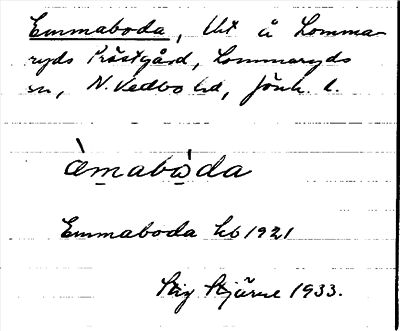 Emmaboda, Ut å Lomma-
ryds Prästgård, Lommaryds
sn, N. Vedbo hd, Jönk. l.
àmabò̤da
Emmaboda hb 1921
Stig Stjärne 1933.